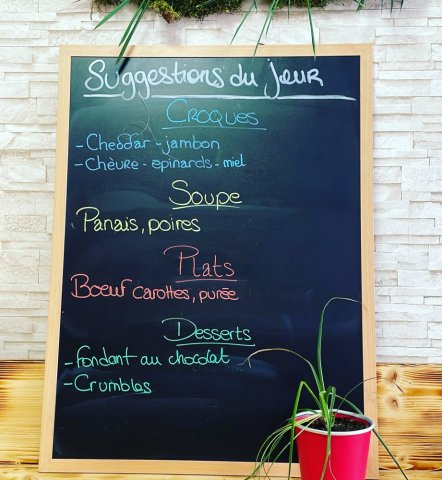 Suggestions du jour
Croques
- Cheddar - jambon
- Chèvre - épinards - miel
Soupe
Panais, poires
Plats
Bœuf carottes, purée
Desserts
- fondant au chocolat
- Crumbles